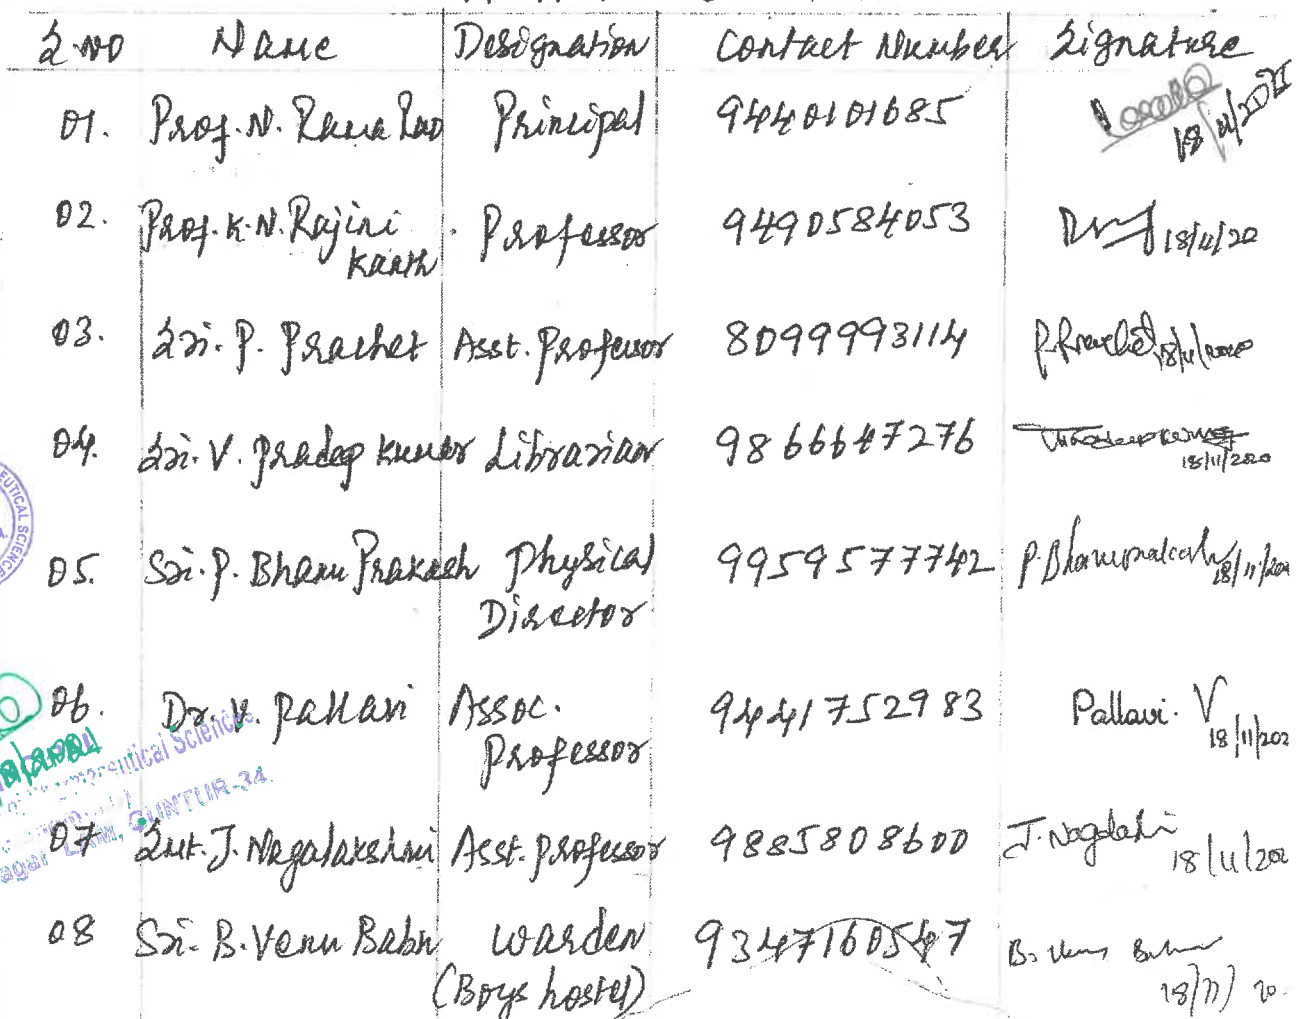 S.NO Name Designation Contact Number Signature
01. Prof. N. Rama Rao Principal 9440101685
18/11/2020
02. Prof. K.N. Rajini Professor 9490584053 18/11/20
Kanth
03. Sri. P. Prachet Asst. Professor 8099993114 P. Prachet 18/11/2020
04. Sri. V. Pradeep Kumar Librarian 9866647276 V. Pradeep Kumar
18/11/2020
05. Sri. P. Bhanu Prakash Physical 9959577742 P. Bhanuprakash 18/11/202
Director
06. Dr. V. Pallavi Assoc. 9441752983 Pallavi. V
Professor 18/11/202
07 Smt. J. Nagalakshmi Asst. Professor 9885808600 J. Nagalakshmi
18/11/202
08 Sri. B. Venu Babu Warden 9347160547 B. Venu Babu
(Boys hostel) 18/11/20
EUTICAL SCIENCE
ceutical Sciences
agar LAM, GUNTUR-34.